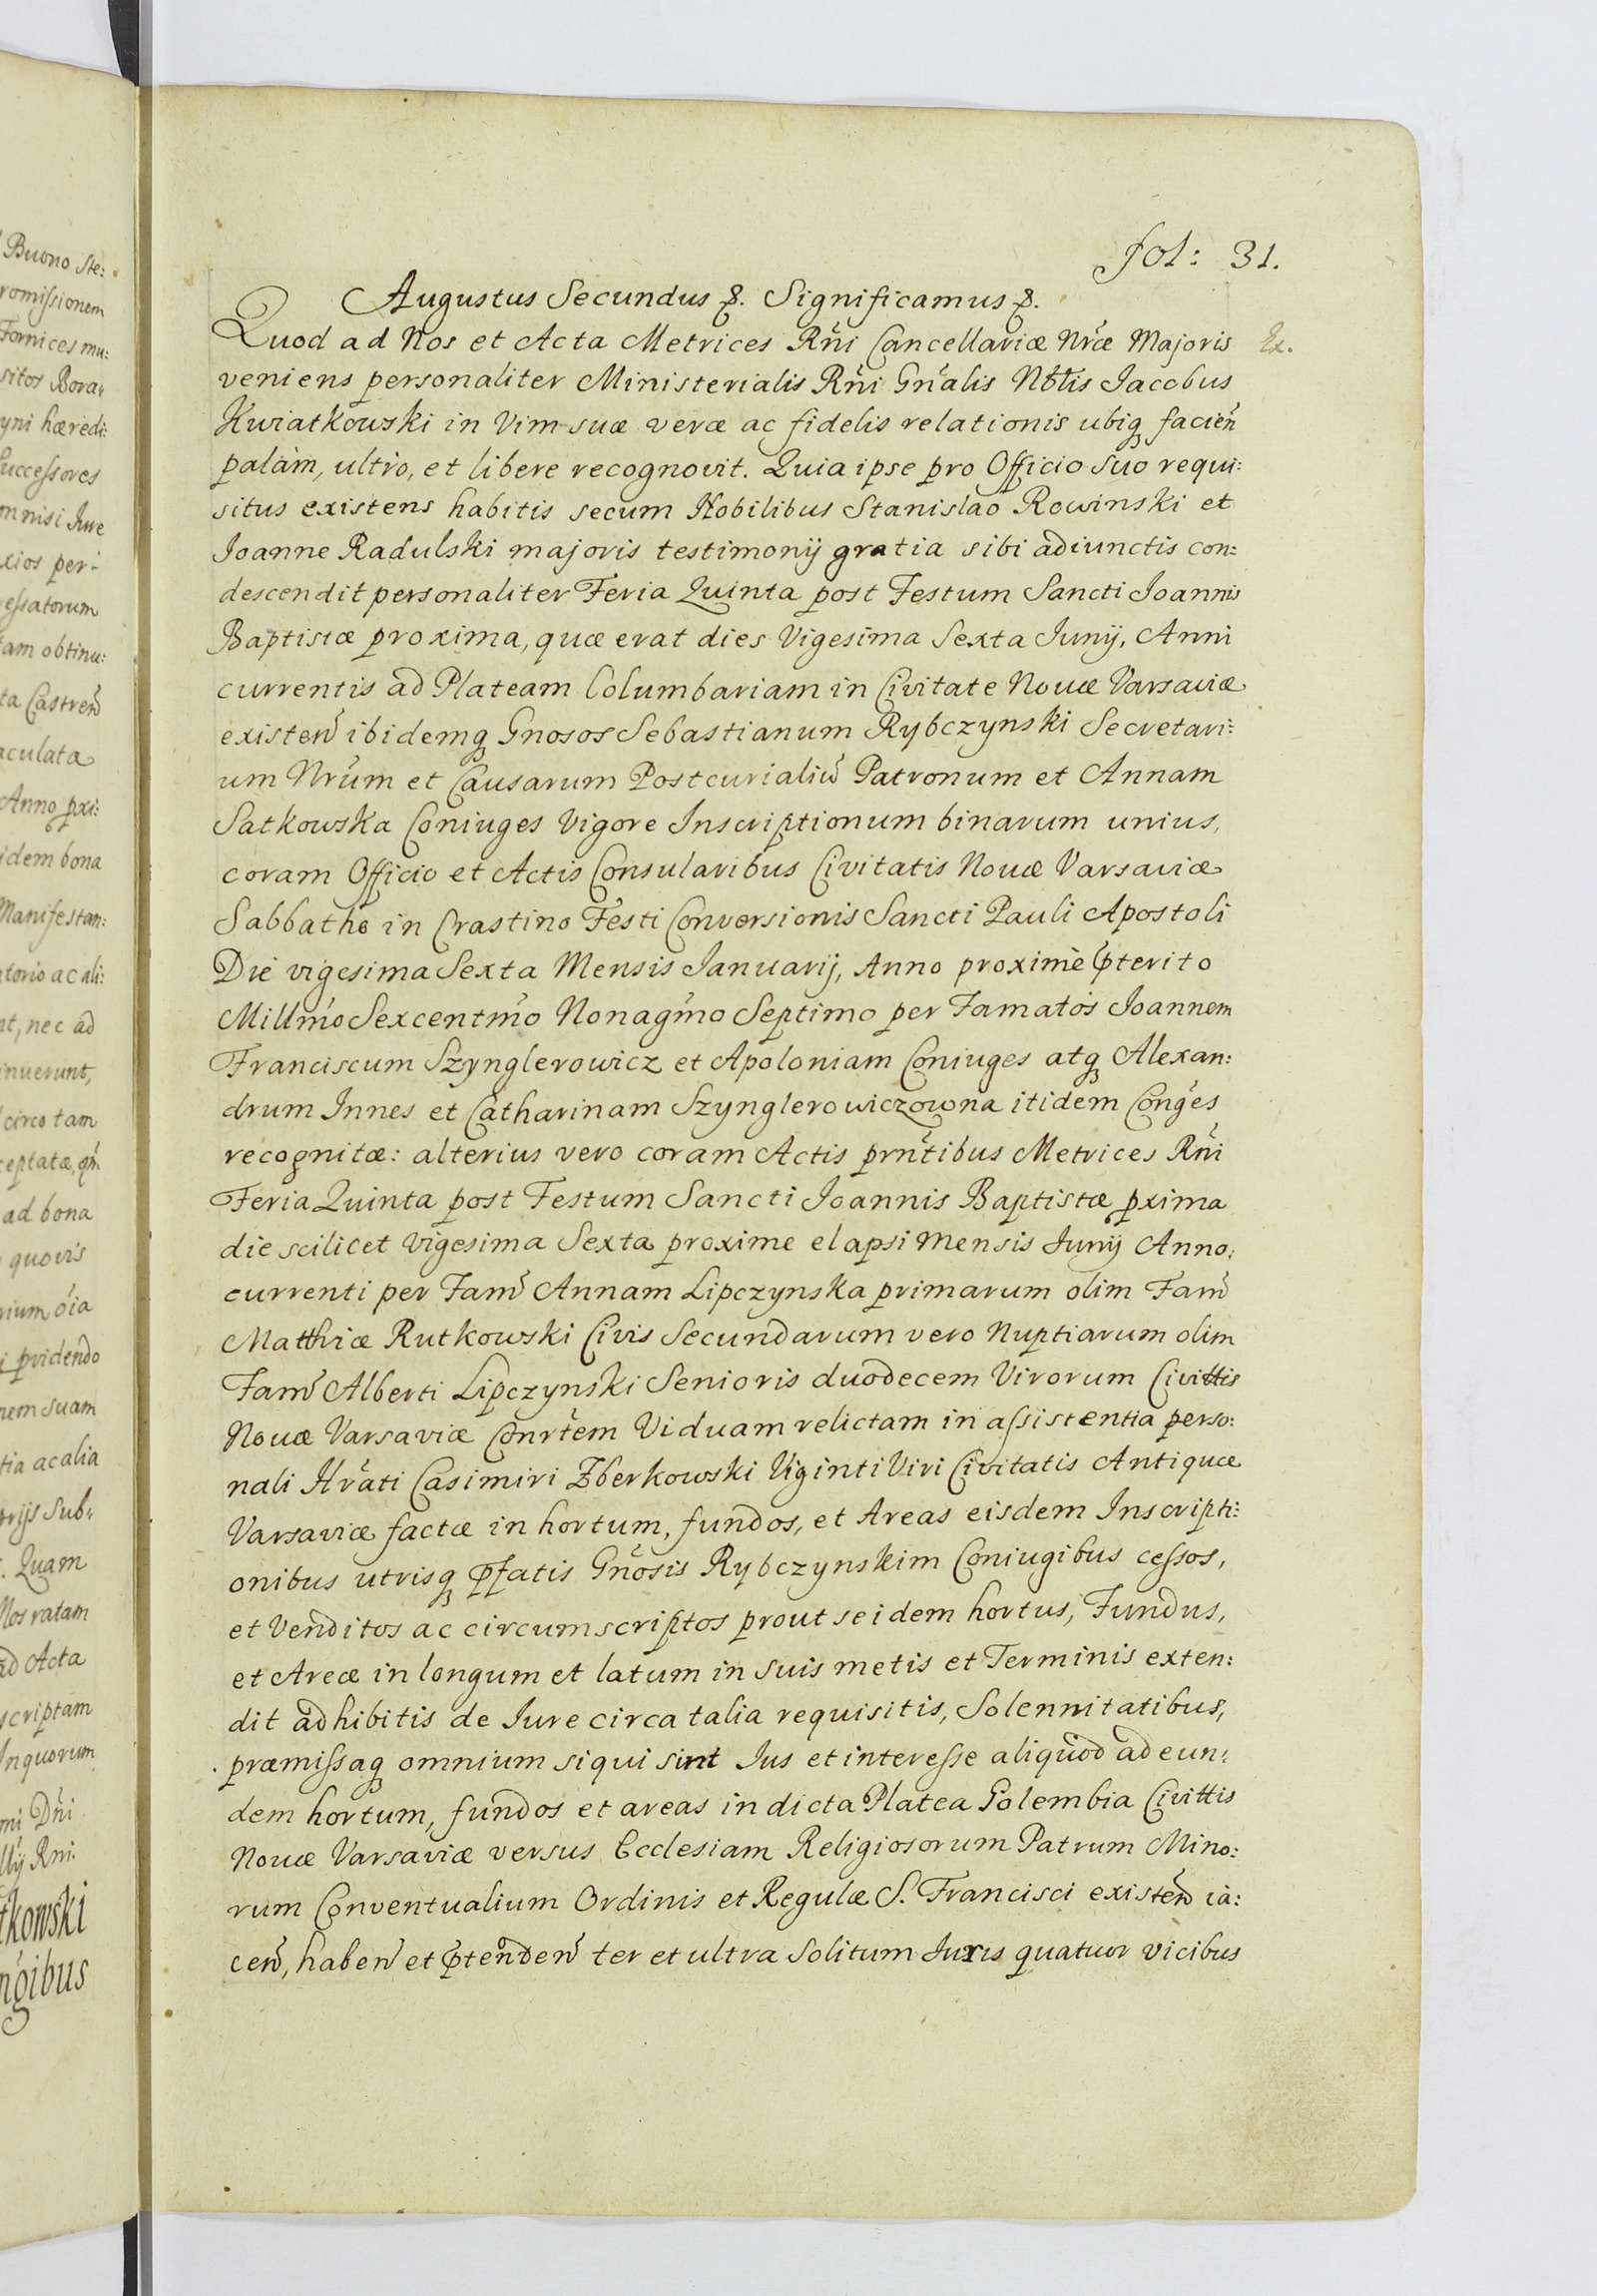 Buono Ste:
romissionem
Fornices mu:
sitos Bora:
yni hæredi:
Successores
m nisi Iure
xios per:
essatorum
tam obtinu:
ta Castren̄
aculata
Anno pxi:
idem bona
Manifestan:
torio ac ali:
nt, nec ad
inuerunt,
circo tam
ceptatæ,
ad bona
quovis
rium oı̄a
pvidendo
nem suam
tia ac alia
Sub:
Quam
Nos ratam
ad Acta
scriptam
Inquorum
mi Dn̄i
Rn̄i
tkowski
ngibus
fol: 31.
Augustus Secundus &. Significamus &.
Quod ad Nos et Acta Metrices Rn̄i Cancellariæ Nræ Majoris
Ex.
veniens personaliter Ministerialis Rn̄i Gn̄alis Nbtlis Iacobus
Kwiatkowski in Vim suæ veræ ac fidelis relationis ubiq facien̄
palàm, ultro, et libere recognovit. Quia ipse pro Officio suo requi:
situs existens habitis secum Nobilibus Stanislao Rowinski et
Joanne Radulski majoris testimonij gratia sibi adiunctis con:
descendit personaliter Feria Quinta post Festum Sancti Joannis
Baptistæ proxima, quæ erat dies Vigesima Sexta Junij, Anni
currentis ad Plateam Columbariam in Civitate Nouæ Varsaviæ
existen̄ ibidemq Gnosos Sebastianum Rybczynski Secretari:
um Nrum et Causarum Postcurialiū Patronum et Annam
Satkowska Coniuges Vigore Inscriptionum binarum unius,
coram Officio et Actis Consularibus Civitatis Nouæ Varsaviæ
Sabbatho in Crastino Festi Conversionis Sancti Pauli Apostoli
Die vigesima Sexta Mensis Ianuarij, Anno proximè pterito
Millm̄o Sexcentm̄o Nonagm̄o Septimo per Famatos Joannem
Franciscum Szynglerowicz et Apoloniam Coniuges atq Alexan:
drum Innes et Catharinam Szynglerowiczowna itidem Conges
recognitæ: alterius vero coram Actis prn̄tibus Metrices Rn̄i
Feria Quinta post Festum Sancti Joannis Baptistæ pxima
die scilicet Vigesima Sexta proxime elapsi Mensis Junij Anno,
currenti per Fam̄ Annam Lipczynska primarum olim Fam̄
Matthiæ Rutkowski Civis Secundarum vero Nuptiarum olim
Fam̄ Alberti Lipczynski Senioris duodecem Virorum Civittis
Nouæ Varsaviæ Conrtem Viduam relictam in assistentia perso:
nali Hrati Casimiri Zberkowski Viginti Viri Civitatis Antiquæ
Varsaviæ factæ in hortum, fundos, et Areas eisdem Inscripti:
onibus utrisq pfatis Gnosis Rybczynskim Coniugibus cessos,
et Venditos ac circumscriptos prout se idem hortus, Fundus,
et Areæ in longum et latum in suis metis et Terminis exten:
dit adhibitis de Iure circa talia requisitis, Solennitatibus,
præmissaq omnium siqui sint Ius et interesse aliquod ad eun:
dem hortum, fundos et areas in dicta Platea Golembia Civittis
Nouæ Varsaviæ versus Ecclesiam Religiosorum Patrum Mino:
rum Conventualium Ordinis et Regulæ S. Francisci existen̄ ia:
cen̄, haben̄ et ptenden̄ ter et ultra Solitum Iuris quatuor vicibus